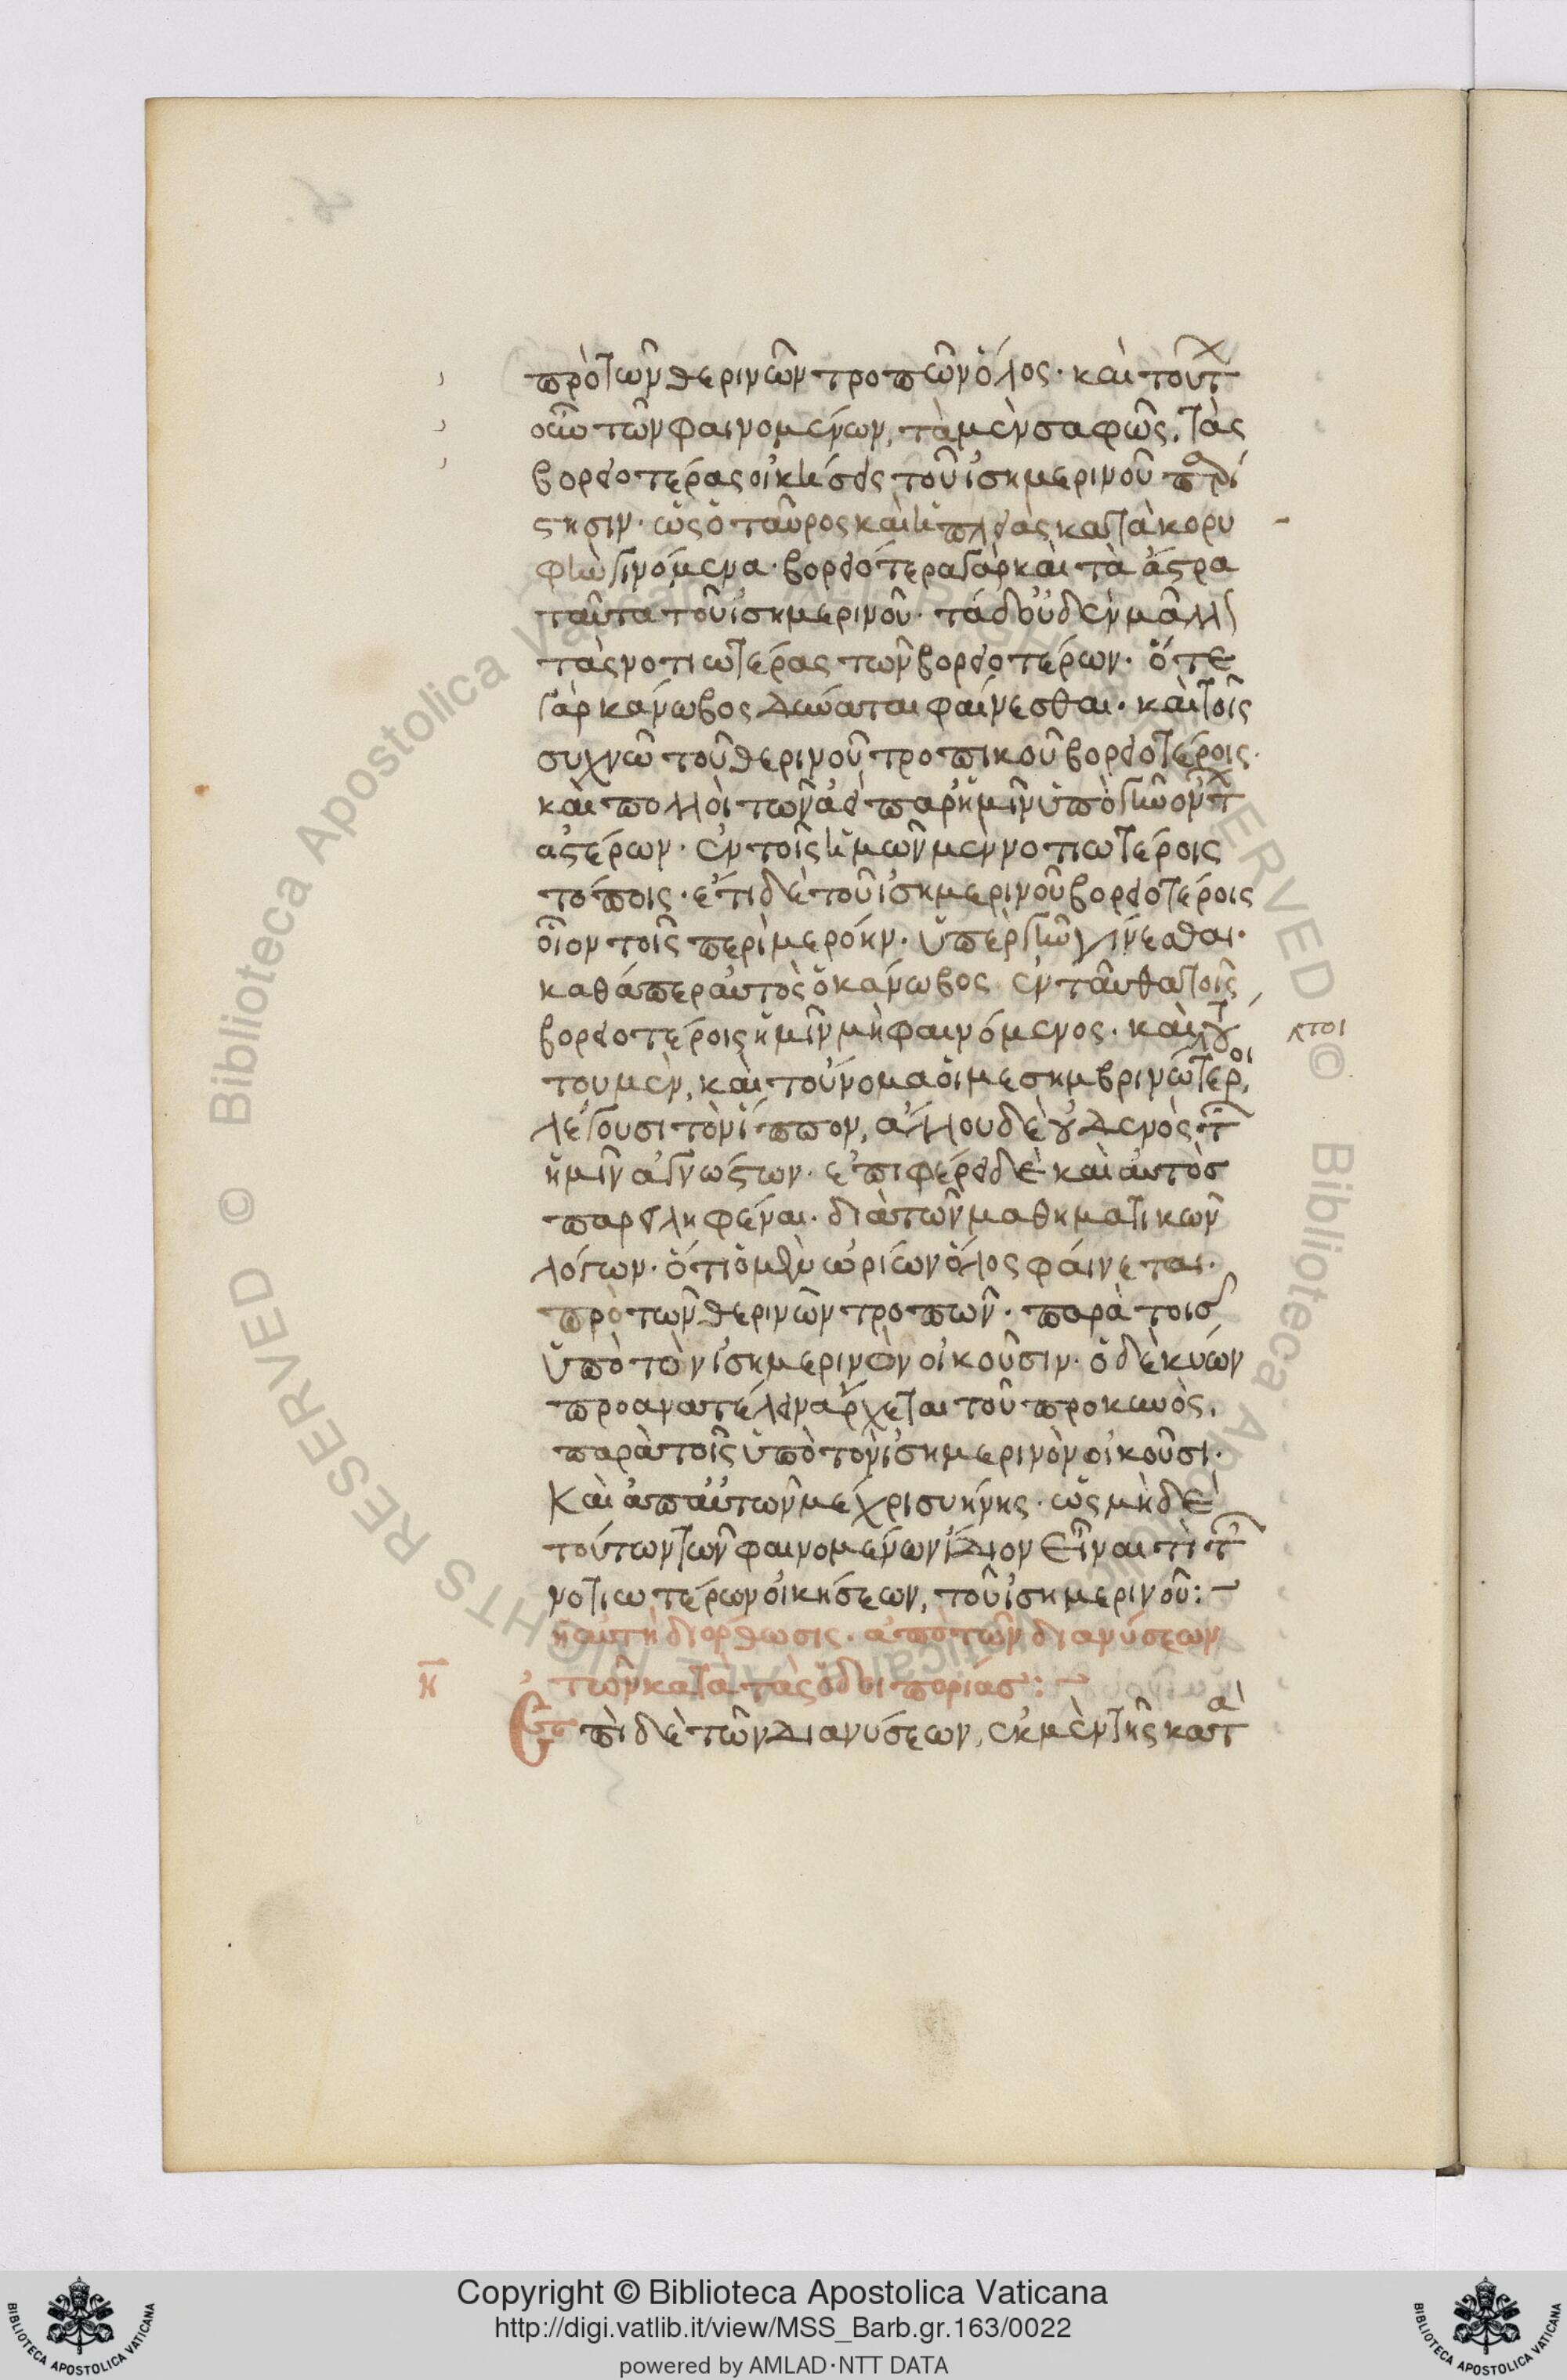 πρὸ τῶν θερινῶν τροπῶν ὅλος· καὶ τούτ
οὖν τῶν φαινομένων, τὰ μὲν σαφῶς, τὰς
βορειοτέρας οἰκήσεις τοῦ ἰσημερινοῦ παρί
στησιν· ὡς ὁ ταῦρος καὶ ἡ πλειὰς κατὰ κορυ
φὴν γινόμενα· βορειότερα γὰρ καὶ τὰ ἄστρα
ταῦτα τοῦ ἰσημερινοῦ· τὰ δ' οὐδὲν μᾶλλ
τὰς νοτιωτέρας τῶν βορειοτέρων· ὅτε
γὰρ κάνωβος δύναται φαίνεσθαι· καὶ τοῖς
συχνῶ τοῦ θερινοῦ τροπικοῦ βορειοτέροις·
καὶ πολλοὶ τῶν ἀεὶ παρ' ἡμῖν ὑπὸ γῆν ὄντ
ἀστέρων· ἐν τοῖς ἡμῶν μὲν νοτιωτέροις
τόποις· ἔτι δὲ τοῦ ἰσημερινοῦ βορειοτέροις
οἷον τοῖς περὶ μερόην· ὑπὲρ γῆν γίνεσθαι·
καθάπερ αὐτὸς ὁ κάνωβος ἐνταῦθα τοῖς
βορειοτέροις ἡμῖν μὴ φαινόμενος· καὶ τού
του μὲν, καὶ τοὔνομα οἱ μεσημβρινώτεροι
λέγουσι τὸν ἵππον, ἄλλου δὲ οὐδενὸς τ
ἡμῖν ἀγνώστων· ἐπιφέρει δὲ καὶ αὐτὸς
παρειληφέναι· διὰ τῶν μαθηματικῶν
λόγων· ὅτι ὁ μὲν ὠρίων ὅλος φαίνεται·
πρὸ τῶν θερινῶν τροπῶν· παρὰ τοῖς
ὑπὸ τὸν ἰσημερινὸν οἰκοῦσιν· ὁ δὲ κύων
προανατέλλειν ἄρχεται τοῦ προκυνὸς,
παρὰ τοῖς ὑπὸ τὸν ἰσημερινὸν οἰκοῦσι·
Καὶ ἀπ' αὐτῶν μέχρι συήνης· ὡς μὴ δὲ
τούτων τῶν φαινομένων ἴδιον εἶναί τι τ
νοτιωτέρων οἰκήσεων, τοῦ ἰσημερινοῦ:
ἡ αὐτὴ διόρθωσις· ἀπὸ τῶν διανύσεων
τῶν κατὰ τὰς ὁδοιπορίας:
Ἐπὶ δὲ τῶν διανύσεων, ἐκ μὲν τῆς κατὰ
η
Copyright © Biblioteca Apostolica Vaticana
http://digi.vatlib.it/view/MSS_Barb.gr.163/0022
powered by AMLAD·NTT DATA
BIBLIOTECA APOSTOLICA VATICANA
BIBLIOTECA APOSTOLICA VATICANA